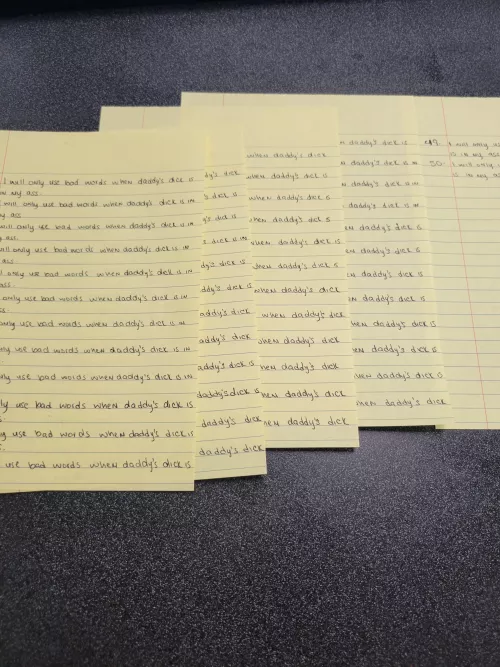 I will only use bad words when daddy's dick is
in my ass
I will only use bad words when daddy's dick is in
my ass
will only use bad words when daddy's dick is
my ass.
will only use bad words when daddy's dick is in
ass.
only use bad words when daddy's dick is in
ass.
only use bad words when daddy's dick is in
only use bad words when daddy's dick is in
only use bad words when daddy's dick is
only use bad words when daddy's dick is in
use bad words when daddy's dick is
use bad words when daddy's dick is
use bad words when daddy's dick is
dick
dick is
dick is
dick is in
dick is
dick is
dick is
daddy's dick
daddy's dick is
daddy's dick is
daddy's dick
daddy's dick
when daddy's dick
when daddy's dick is
when daddy's dick is
when daddy's dick is
when daddy's dick is
when daddy's dick is
when daddy's dick
when daddy's dick is
when daddy's dick
daddy's dick
daddy's dick
daddy's dick
daddy's dick is
daddy's dick is in
daddy's dick is in
daddy's dick is
daddy's dick is
daddy's dick is
daddy's dick is
daddy's dick
daddy's dick is
daddy's dick is
daddy's dick is
daddy's dick
49. I will only
in my ass
50. I will only
in my ass